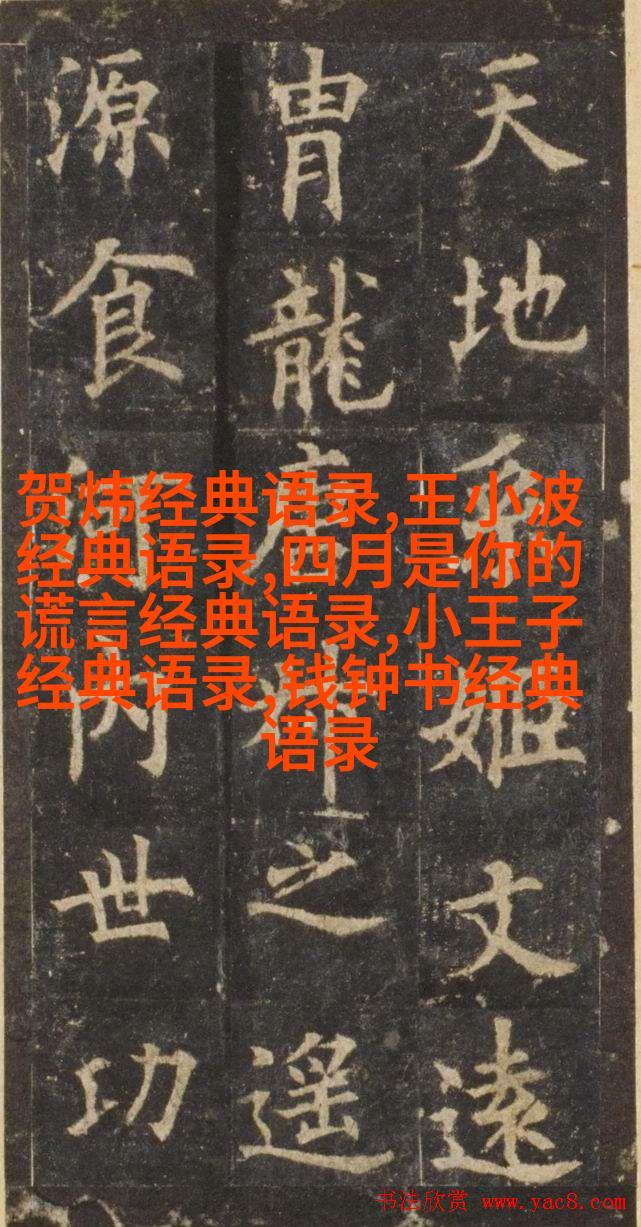 天地姬文遠
胄龍之遥
源食内世功
贺炜经典语录,王小波
经典语录,四月是你的
谎言经典语录,小王子
经典语录,钱钟书经典
语录
书法欣赏 www.yac8.com